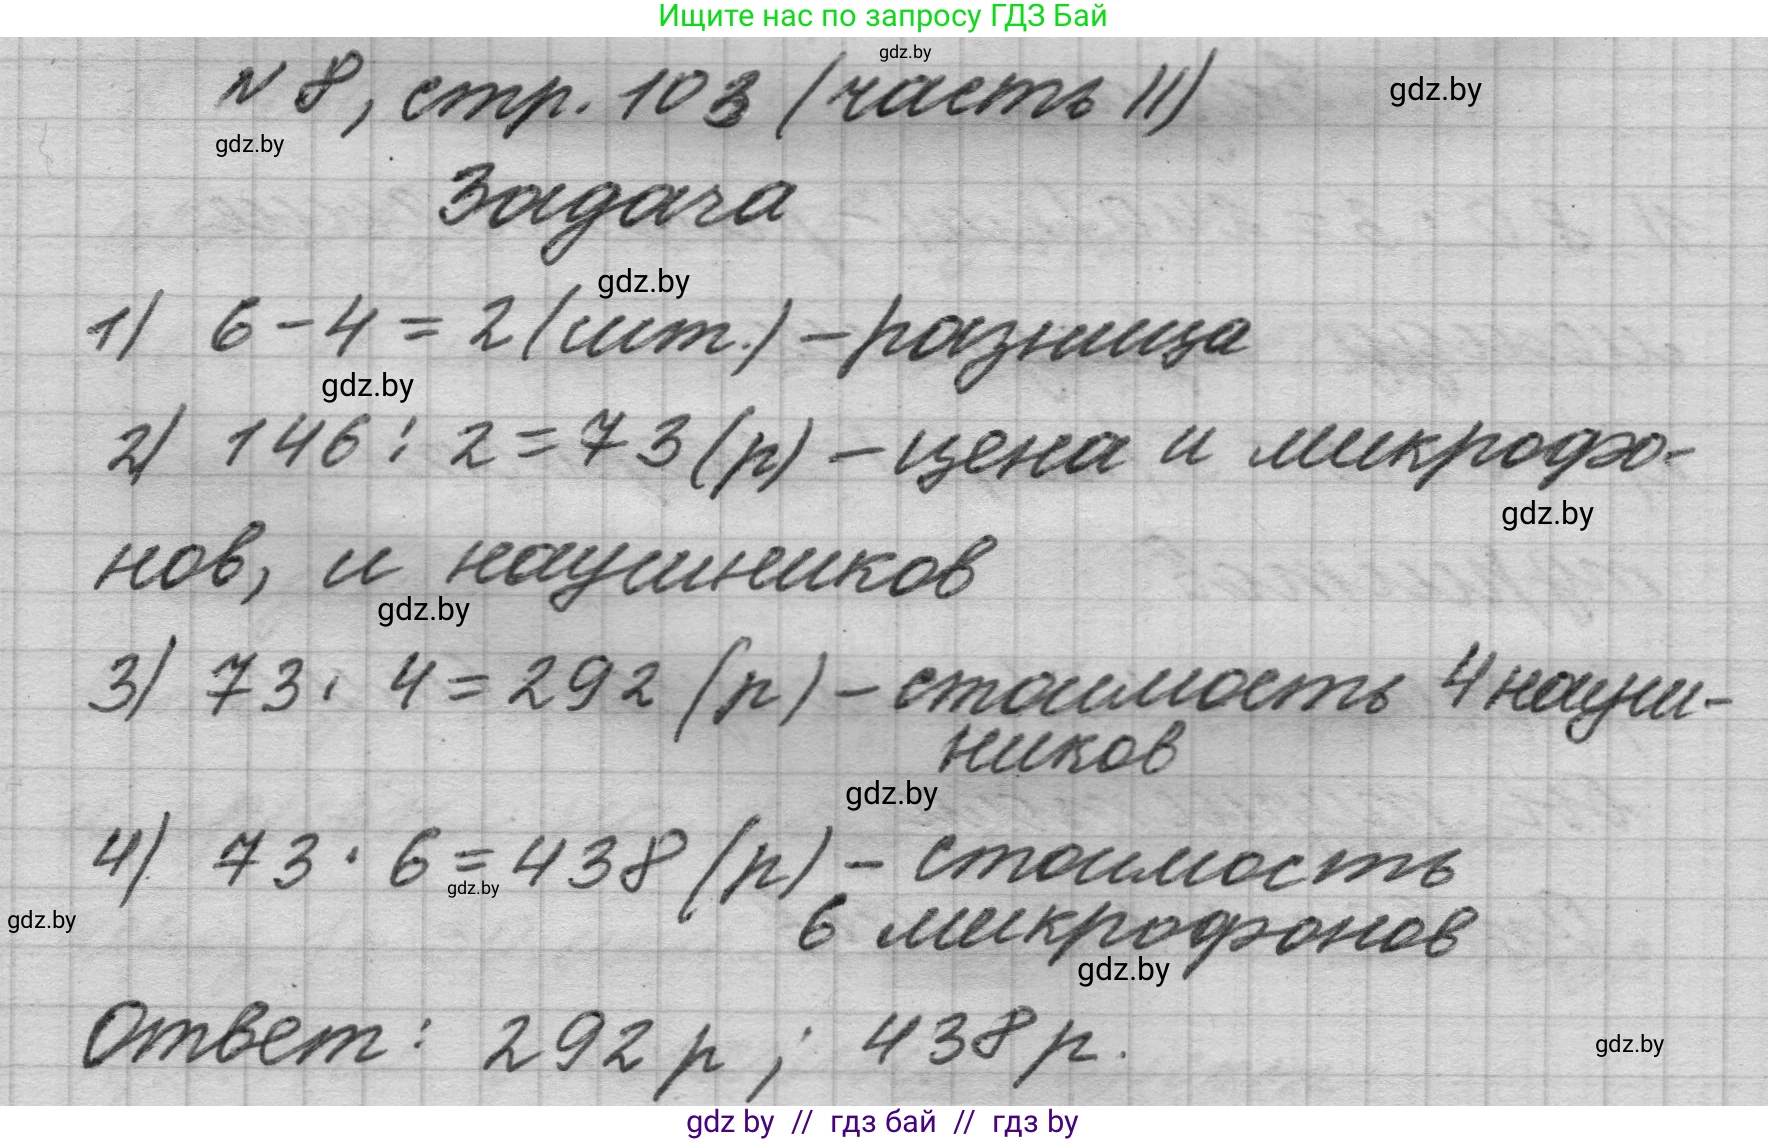 Ищите нас по запросу ГДЗ Бай
gdz.by
N 8, стр. 103 (часть II)
gdz.by
gdz.by
Задача
gdz.by
1) 6 - 4 = 2 (шт.) - разница
gdz.by
2) 146 : 2 = 73 (р) - цена и микрофо-
gdz.by
нов, и наушников
gdz.by
3) 73 · 4 = 292 (р) - стоимость 4 науш-
ников
gdz.by
4) 73 · 6 = 438 (р) - стоимость
gdz.by
gdz.by
6 микрофонов
gdz.by
Ответ: 292 р ; 438 р.
gdz.by
gdz by // гдз бай // гдз by